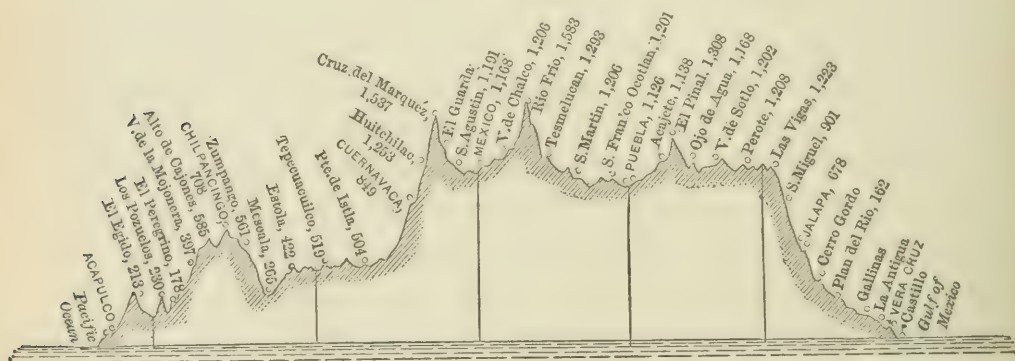 Pacific
Ocean
ACAPULCO
El Egido, 213
Los Pozuelos, 230
El Peregrino, 178
V. de la Mojonera, 397
Alto de Cajones, 585
CHILPANCINGO,
708
Zumpango, 561
Mescala, 265
Estola, 422
Tepecuacuilco, 519
Pte. de Istla, 504
CUERNAVACA,
849
Huitchilac,
1,253
Cruz. del Marquéz,
1,537
El Guarda
S. Agustin, 1,191
MEXICO, 1,168
V. de Chalco, 1,206
Rio Frio, 1,583
Tesmelucan, 1,293
S. Martin, 1,206
S. Fran'co Ocotlan, 1,201
PUEBLA, 1,126
Acajete, 1,138
El Pinal, 1,308
Ojo de Agua, 1,168
V. de Sotlo, 1,202
Perote, 1,208
Las Vigas, 1,223
S. Miguel, 901
JALAPA, 678
Cerro Gordo
Plan del Rio, 162
Gallinas
La Antigua
VERA CRUZ
Castillo
Gulf of
Mexico